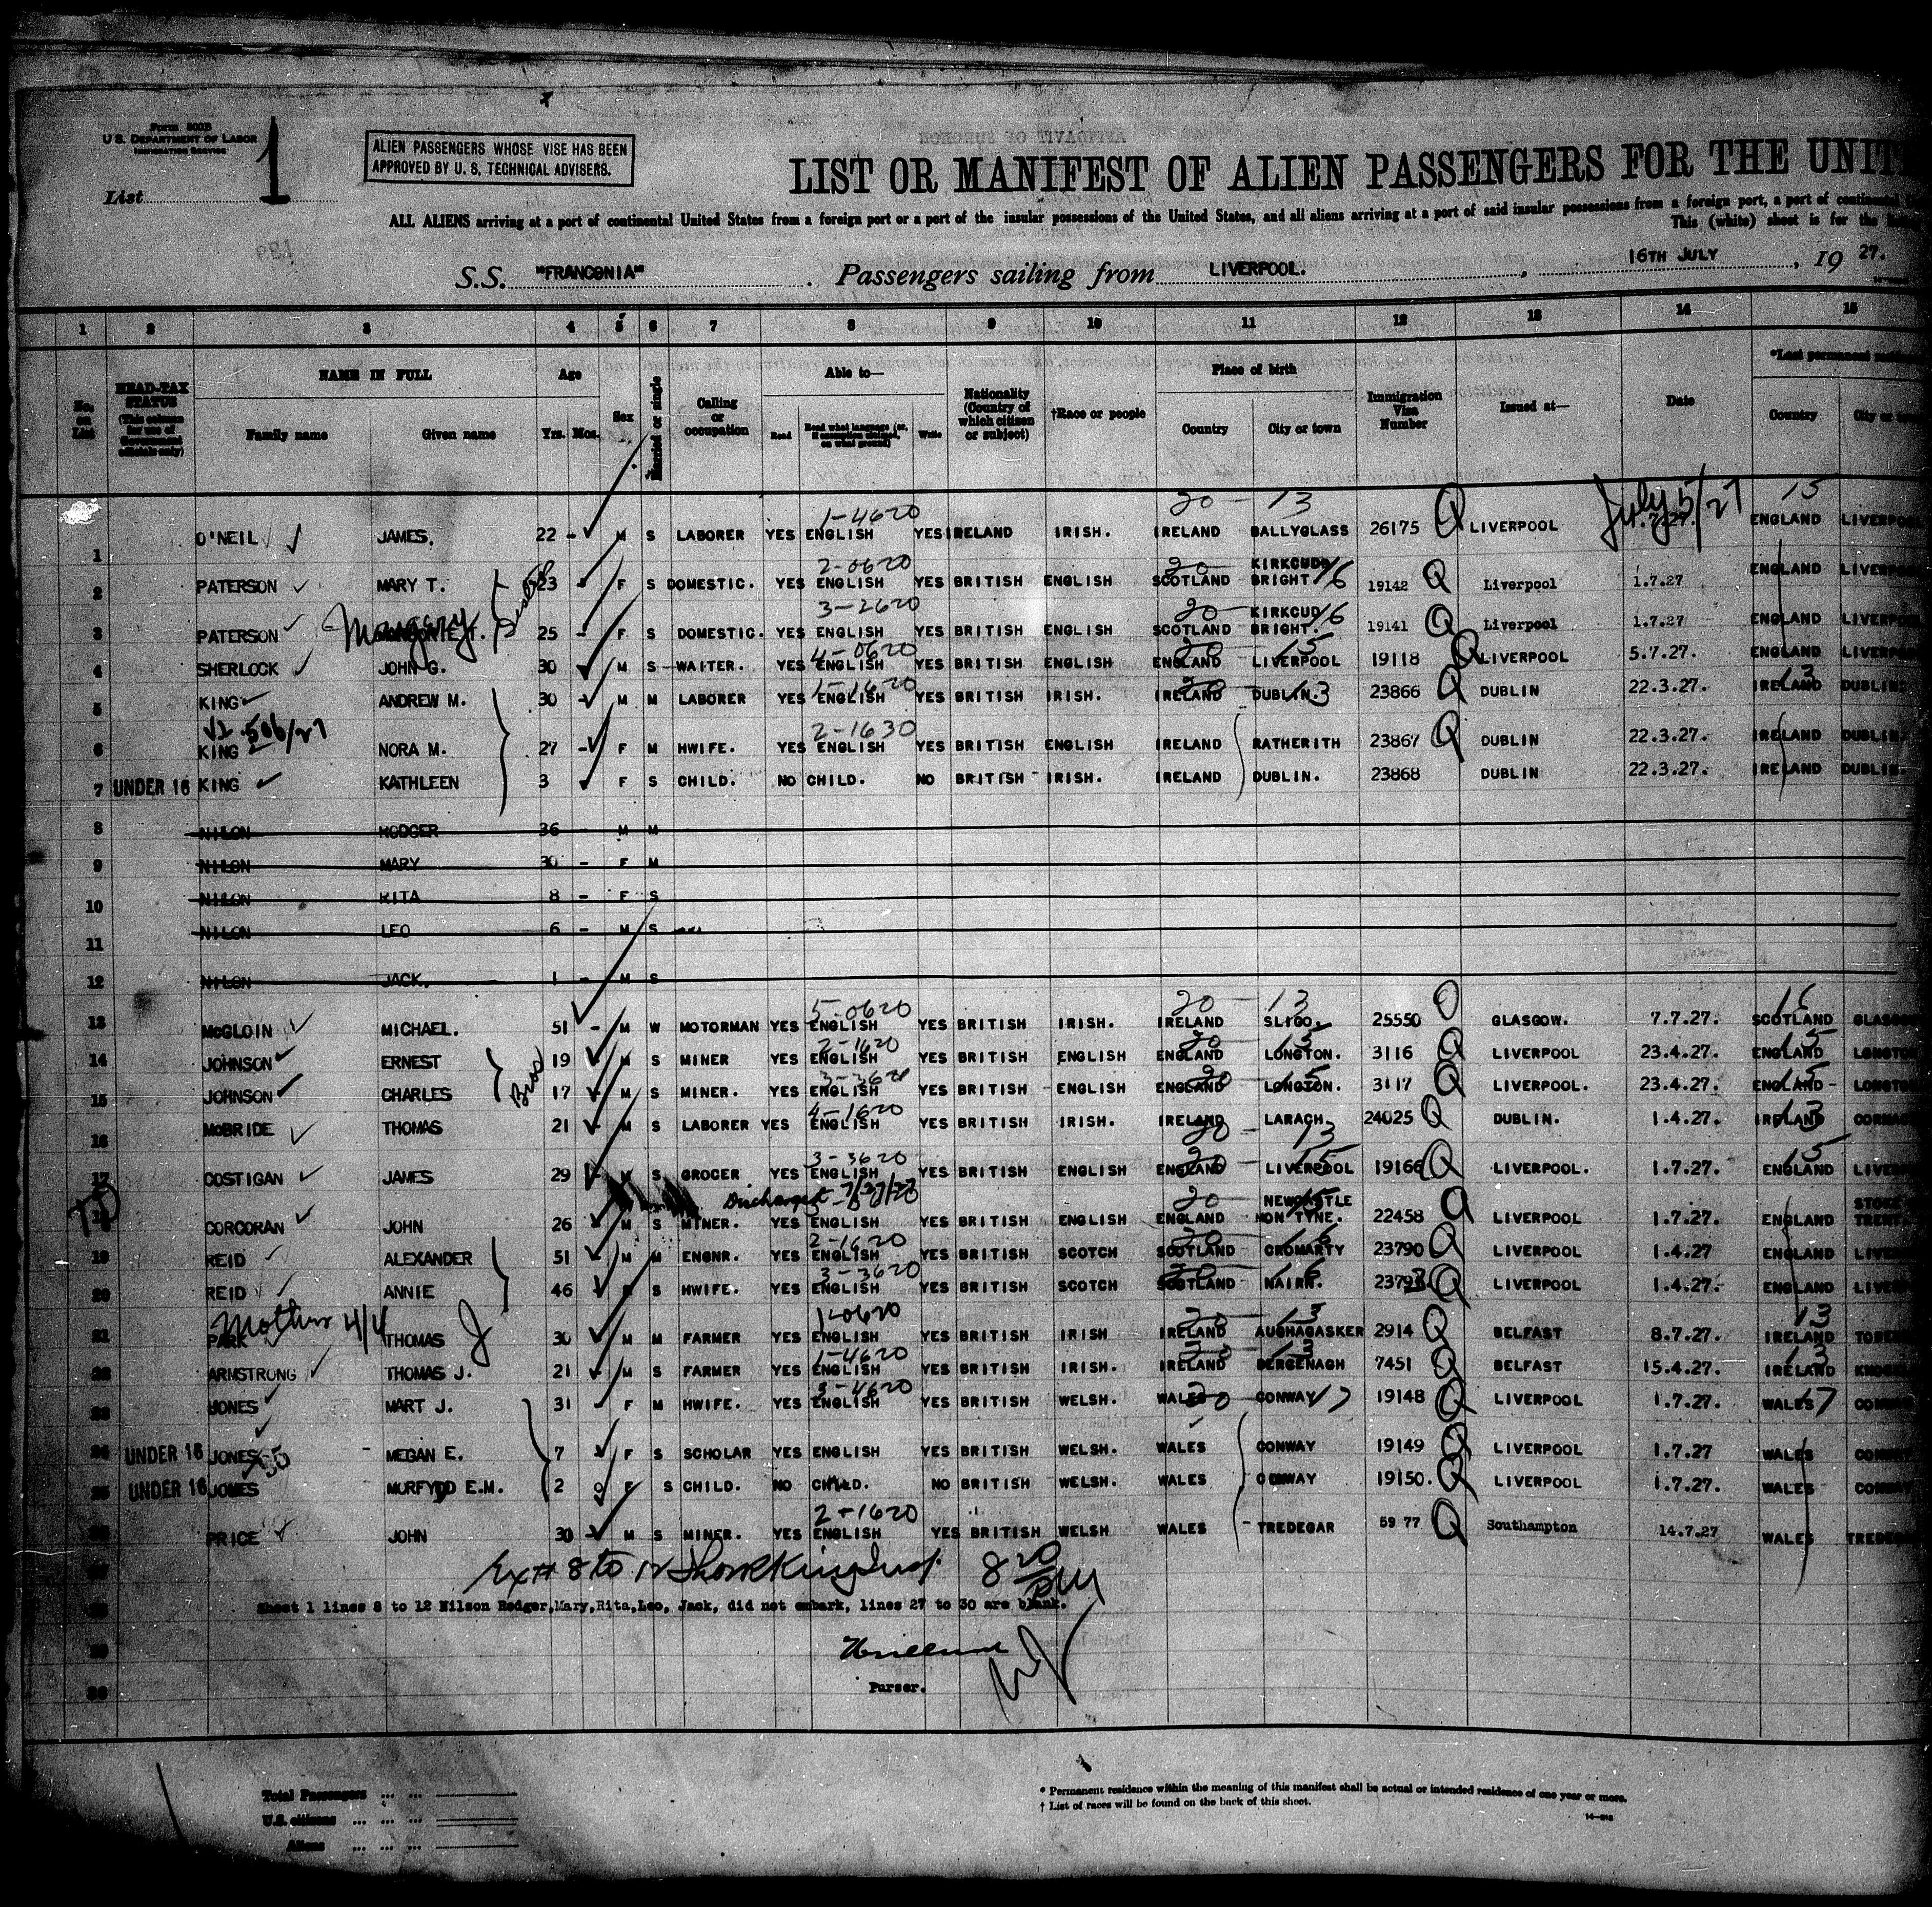 Form 500B
U.S. DEPARTMENT OF LABOR
IMMIGRATION SERVICE
List 1
ALIEN PASSENGERS WHOSE VISE HAS BEEN
APPROVED BY U. S. TECHNICAL ADVISERS.
LIST OR MANIFEST OF ALIEN PASSENGERS FOR THE UNIT
ALL ALIENS arriving at a port of continental United States from a foreign port or a port of the insular possessions of the United States, and all aliens arriving at a port of said insular possessions from a foreign port, a port of continental
This (white) sheet is for the
S.S. "FRANCONIA" Passengers sailing from LIVERPOOL. , 16TH JULY , 19 27.
1 2 3 4 5 6 7 8 9 10 11 12 13 14 15
No. on List
HEAD-TAX STATUS (This column for use of Government officials only)
NAME IN FULL Family name Given name
Age Yrs. Mos.
Sex
Married or single
Calling or occupation
Able to— Read Read what language (or, if exemption claimed, on what ground) Write
Nationality (Country of which citizen or subject)
†Race or people
Place of birth Country City or town
Immigration Visa Number
Issued at—
Date
*Last permanent Country City or
1-4620 20 - 13 July 5/27 15
1 O'NEIL JAMES. 22 - M S LABORER YES ENGLISH YES IRELAND IRISH. IRELAND BALLYGLASS 26175 Q LIVERPOOL ENGLAND LIVERPOO
2-0620 20
2 PATERSON MARY T. 23 - F S DOMESTIC. YES ENGLISH YES BRITISH ENGLISH SCOTLAND KIRKCUD BRIGHT 16 19142 Q Liverpool 1.7.27 ENGLAND LIVERPO
3-2620 20
3 PATERSON Margery T. 25 - F. S DOMESTIC. YES ENGLISH YES BRITISH ENGLISH SCOTLAND KIRKCUD BRIGHT. 16 19141 Q Liverpool 1.7.27 ENGLAND LIVERPO
4-0620 20 15
4 SHERLOCK JOHN G. 30 M S WAITER. YES ENGLISH YES BRITISH ENGLISH ENGLAND LIVERPOOL 19118 Q LIVERPOOL 5.7.27. ENGLAND LIVERPO
1-1620 20 13
5 KING ANDREW M. 30 - M M LABORER YES ENGLISH YES BRITISH IRISH. IRELAND DUBLIN. 23866 Q DUBLIN 22.3.27. IRELAND DUBLIN
506/27 2-1630
6 KING NORA M. 27 - F M HWIFE. YES ENGLISH YES BRITISH ENGLISH IRELAND RATHERITH 23867 Q DUBLIN 22.3.27. IRELAND DUBLIN
7 UNDER 16 KING KATHLEEN 3 F S CHILD. NO CHILD. NO BRITISH IRISH. IRELAND DUBLIN. 23868 DUBLIN 22.3.27. IRELAND DUBLIN.
8 NILON RODGER 36 - M M
9 NILON MARY 30 - F M
10 NILON RITA 8 - F S
11 NILON LEO 6 - M S
12 NILON JACK. 1 - M S
5-0620 20 - 13 16
13 McGLOIN MICHAEL. 51 - M W MOTORMAN YES ENGLISH YES BRITISH IRISH. IRELAND SLIGO. 25550 GLASGOW. 7.7.27. SCOTLAND GLASG
2-1620 20 15
14 JOHNSON ERNEST 19 M S MINER YES ENGLISH YES BRITISH ENGLISH ENGLAND LONGTON. 3116 Q LIVERPOOL 23.4.27. ENGLAND LONGTO
Bros
15 JOHNSON CHARLES 17 M S MINER. YES ENGLISH YES BRITISH ENGLISH ENGLAND LONGTON. 3117 Q LIVERPOOL. 23.4.27. ENGLAND LONGTO
4-1620
16 McBRIDE THOMAS 21 M S LABORER YES ENGLISH YES BRITISH IRISH. IRELAND LARAGH. 24025 Q DUBLIN. 1.4.27. IRELAND
20 - 13
3-3620 20 15 15
17 COSTIGAN JAMES 29 M S GROCER YES ENGLISH YES BRITISH ENGLISH ENGLAND LIVERPOOL 19166 Q LIVERPOOL. 1.7.27. ENGLAND LIVER
Discharged 7/27/27 20
18 CORCORAN JOHN 26 M S MINER. YES ENGLISH YES BRITISH ENGLISH ENGLAND NEWCASTLE HON TYNE. 22458 Q LIVERPOOL 1.7.27. ENGLAND STOKE TRENT
2-1620 20 16
19 REID ALEXANDER 51 M M ENGNR. YES ENGLISH YES BRITISH SCOTCH SCOTLAND CROMARTY 23790 Q LIVERPOOL 1.4.27 ENGLAND LIVE
3-3620 16
20 REID ANNIE 46 S HWIFE. YES ENGLISH YES BRITISH SCOTCH SCOTLAND NAIRN. Q LIVERPOOL 1.4.27. ENGLAND LIVER
Mother 4/4 1-0620 20 - 13 13
21 PARK THOMAS J 30 M M FARMER YES ENGLISH YES BRITISH IRISH IRELAND AUGHAGASKER 2914 Q BELFAST 8.7.27. IRELAND TOBER
1-4620 20 13 13
22 ARMSTRONG THOMAS J. 21 M S FARMER YES ENGLISH YES BRITISH IRISH. IRELAND DERGENAGH 7451 Q BELFAST 15.4.27. IRELAND
3-4620
23 JONES MART J. 31 F M HWIFE. YES ENGLISH YES BRITISH WELSH. WALES 20 CONWAY 17 19148 Q LIVERPOOL 1.7.27. WALES 17 CONW
24 UNDER 16 JONES MEGAN E. 7 F S SCHOLAR YES ENGLISH YES BRITISH WELSH. WALES CONWAY 19149 Q LIVERPOOL 1.7.27 WALES CONW
25 UNDER 16 JONES MORFYDD E.M. 2 0 F S CHILD. NO CHILD. NO BRITISH WELSH. WALES CONWAY 19150. Q LIVERPOOL 1.7.27. WALES CONW
2-1620
26 PRICE JOHN 30 - M S MINER. YES ENGLISH YES BRITISH WELSH WALES TREDEGAR 5977 Q Southampton 14.7.27 WALES TREDE
27 8 20 PM
28 Sheet 1 lines 8 to 12 Nilson Rodger,Mary,Rita,Leo, Jack, did not embark, lines 27 to 30 are blank.
29
30 Purser.
Total Passengers ... ...
U.S. citizens ... ... ...
Aliens ... ... ...
* Permanent residence within the meaning of this manifest shall be actual or intended residence of one year or more.
† List of races will be found on the back of this sheet.